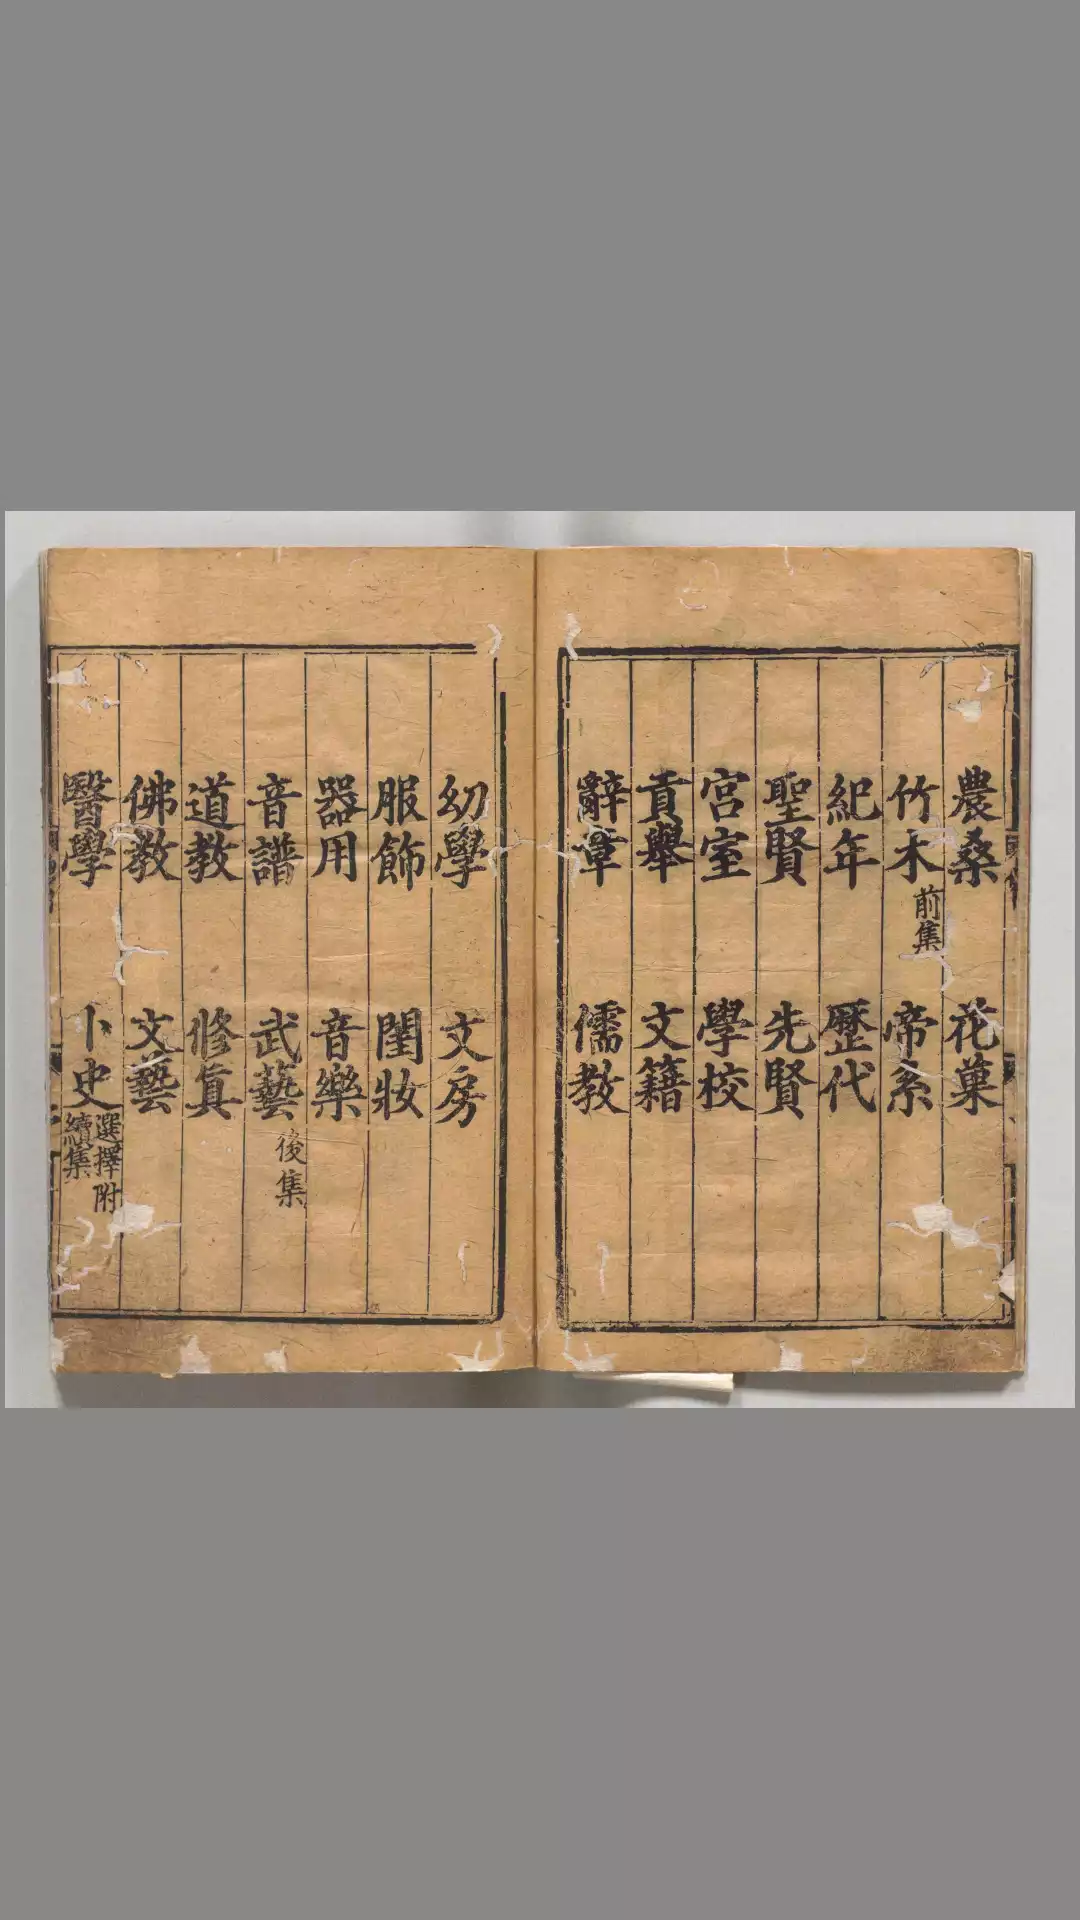 農桑 花菓
竹木前集 帝系
紀年 歷代
聖賢 先賢
宮室 學校
貢舉 文籍
辭章 儒教
幼學 文房
服飾 閨妝
器用 音樂
音譜 武藝後集
道教 修真
佛教 文藝
醫學 卜史選擇附續集